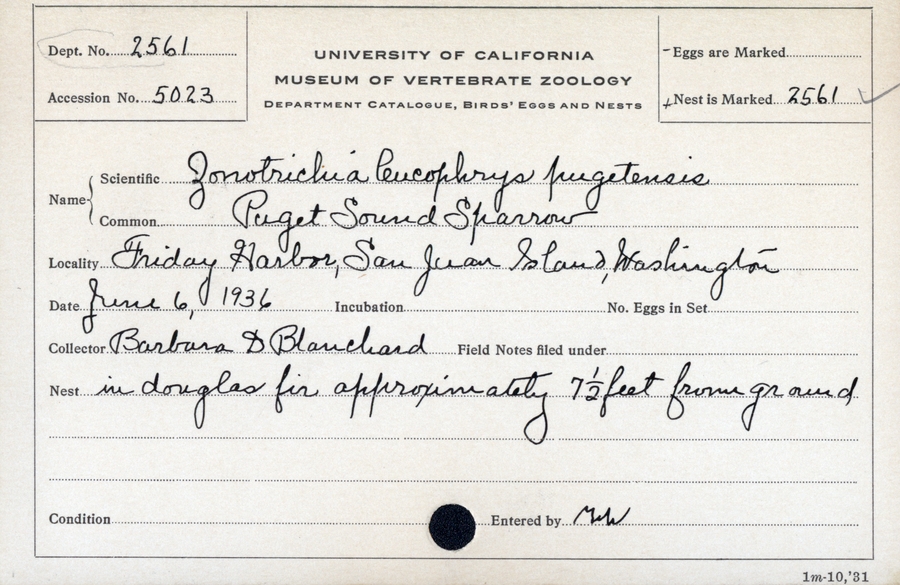 Dept. No. 2561
Accession No. 5023
UNIVERSITY OF CALIFORNIA
MUSEUM OF VERTEBRATE ZOOLOGY
DEPARTMENT CATALOGUE, BIRDS' EGGS AND NESTS
-Eggs are Marked
+Nest is Marked 2561
Name
Scientific Zonotrichia leucophrys pugetensis
Common Puget Sound Sparrow
Locality Friday Harbor, San Juan Island, Washington
Date June 6, 1936 Incubation No. Eggs in Set
Collector Barbara D Blanchard Field Notes filed under
Nest in douglas fir approximately 7½ feet from ground
Condition Entered by
1m-10,'31